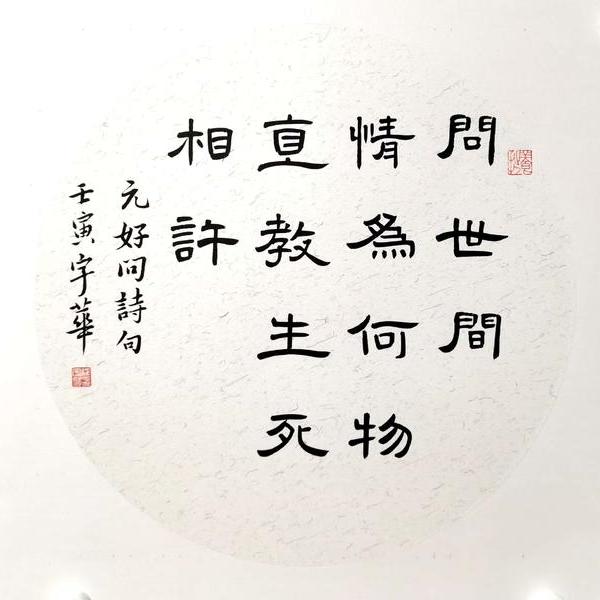 問世間
情為何物
直教生死
相許
元好问詩句
壬寅宇華